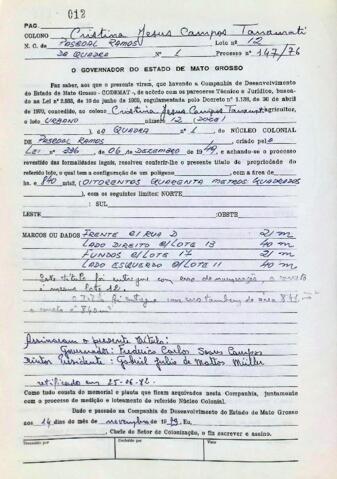 PAG. 012
COLONO Cristina Jesus Campos Tanaurati
N. C. de PASCOAL RAMOS Lote nº 12
DA QUADRA Nº L Processo nº 147/76
O GOVERNADOR DO ESTADO DE MATO GROSSO
Faz saber, aos que o presente virem, que havendo a Companhia de Desenvolvimento
do Estado de Mato Grosso - CODEMAT -, de acordo com os pareceres Técnico e Jurídico, baseado
na Lei nº de 10 de junho de regulamentada pelo Decreto nº 1.138, de 30 de abril
de 1970, concedido, ao colono Cristina Jesus Campos Tanaurati agricultor,
o lote URBANO número 12 (DOZE)
), da QUADRA nº L do NÚCLEO COLONIAL
DE PASCOAL RAMOS criado pela
Lei nº 336 de 06 de DEZEMBRO de 1949, e achando-se o processo
revestido das formalidades legais, resolveu conferir-lhe o presente título de propriedade do
referido lote, o qual tem a configuração de um polígono com a área de
hs. e 840 mts2, (OITOCENTOS QUARENTA METROS QUADRADOS
), com os seguintes limites: NORTE
: SUL
LESTE :OESTE
MARCOS OU DADOS FRENTE C/ RUA D 21 m
LADO DIREITO C/LOTE 13 40 m
FUNDOS C/LOTE 17 21 m
LADO ESQUERDO C/LOTE 11 40 m
Este título foi entregue com erro de numeração, o
é mesmo lote 12.
O título foi entregue com erro também de área
o correto é 840 m²
Assinaram o presente título:
Governador: Frederico Carlos Soares Campos
Diretor Presidente: Gabriel Júlio de Mattos Müller
retificado em 25-06-82.
Tudo como consta do memorial e planta que ficam arquivados nesta Companhia, juntamente
com o processo de medição e loteamento do referido Núcleo Colonial.
Dado e passado na Companhia de Desenvolvimento do Estado de Mato Grosso
aos 14 dias do mês de novembro de 1979. Eu,
, Chefe do Setor de Colonização, o fiz escrever e assino.